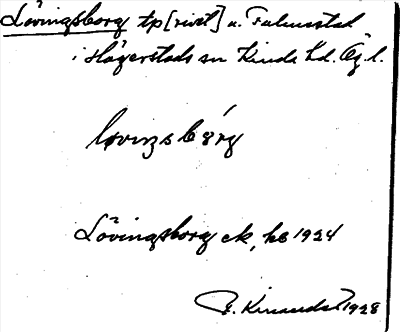 Lövingsborg tp [rivet] u. Falunstad
i Hägerstads sn Kinda hd. Ög. l.
lovinsbórg
Lövingsborg ek, hc 1924
E. 1928